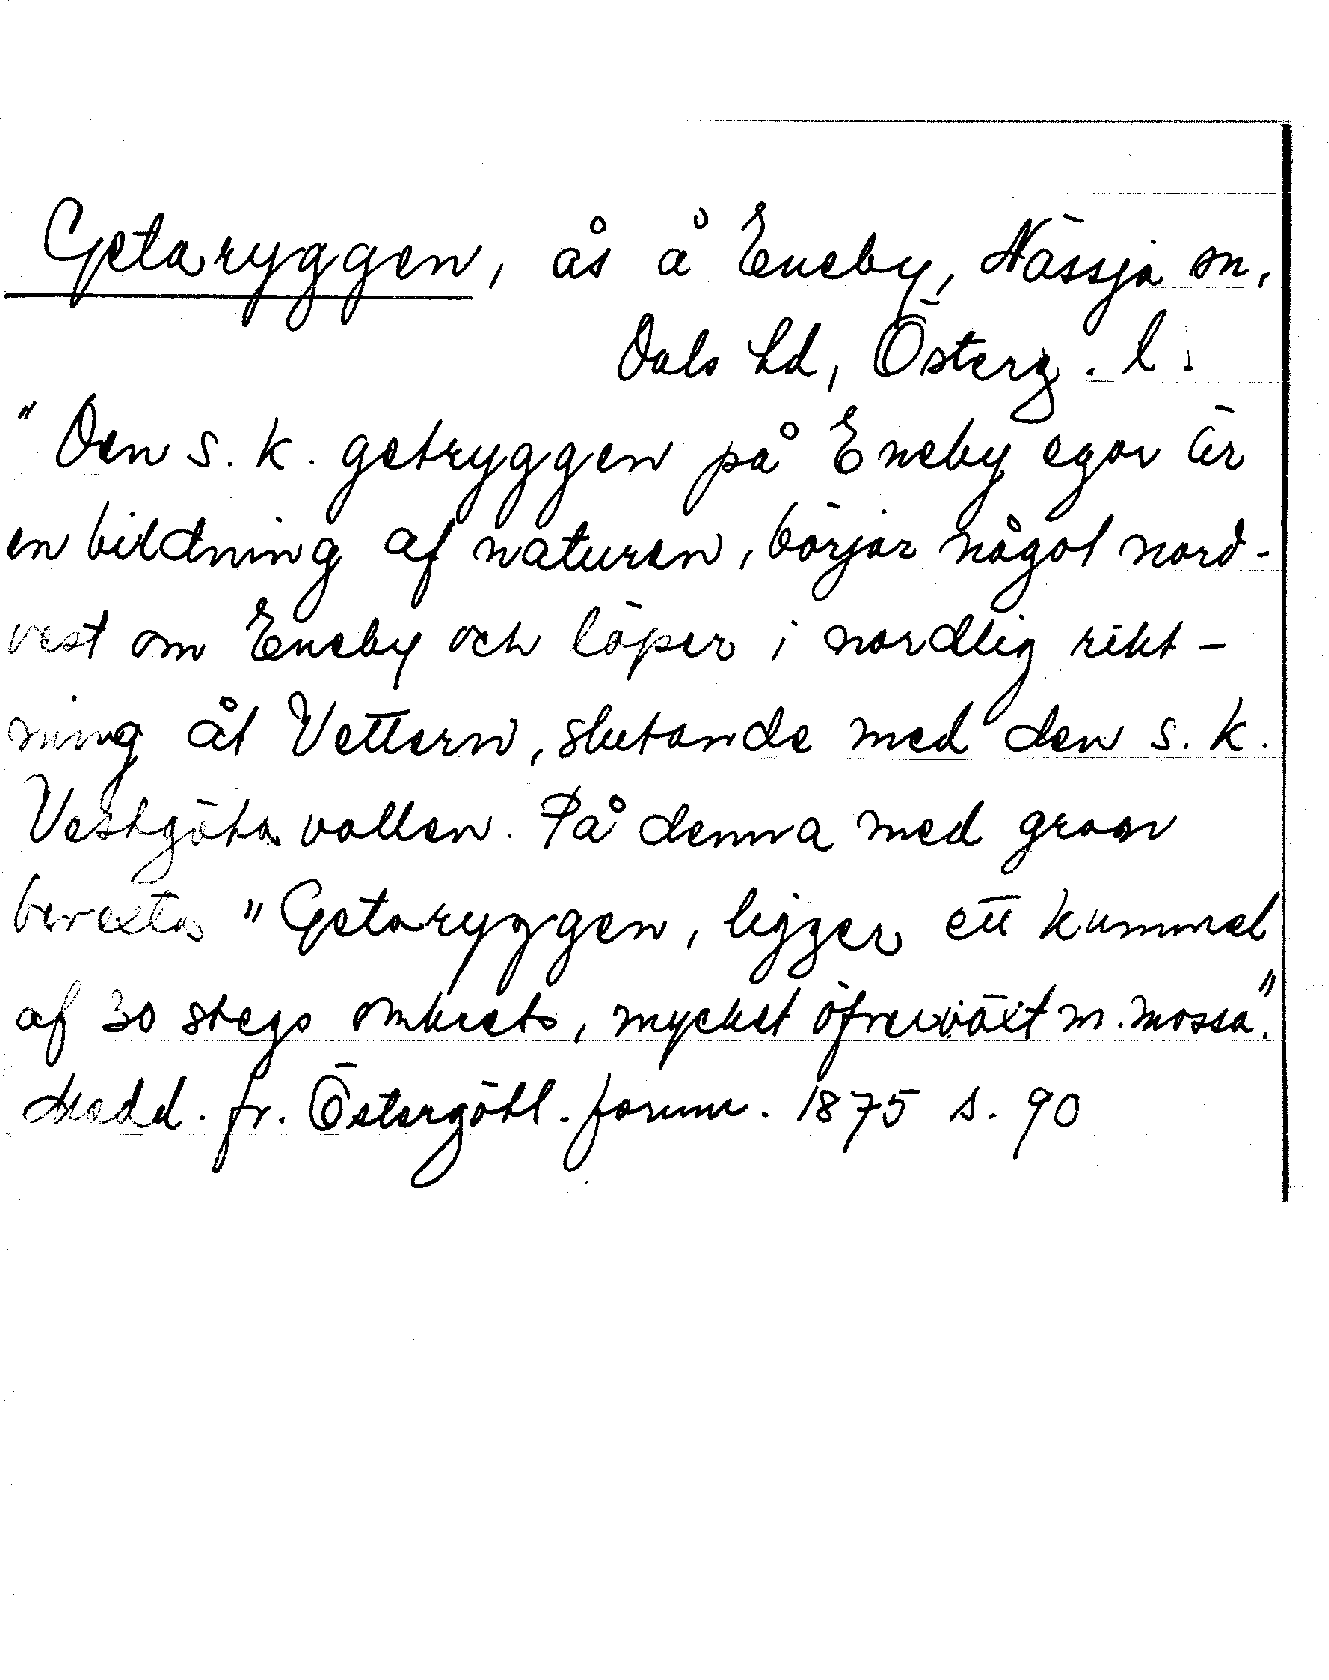 Getaryggen, ås å Eneby, Nässja sn,
Dals hd, Österg. l.
"Den s. k. getryggen på Eneby egor är
en bildning af naturen, börjar något nord-
vest om Eneby och löper i nordlig rikt-
ning åt Vettern, slutande med den s. k.
Vestgöta vallen. På denna med gran
bevexta "Getaryggen, ligger ett kummel
af 30 stegs omkrets, mycket öfverväxt m. mossa."
Medd. fr. Östergötl. fornm. 1875 s. 90